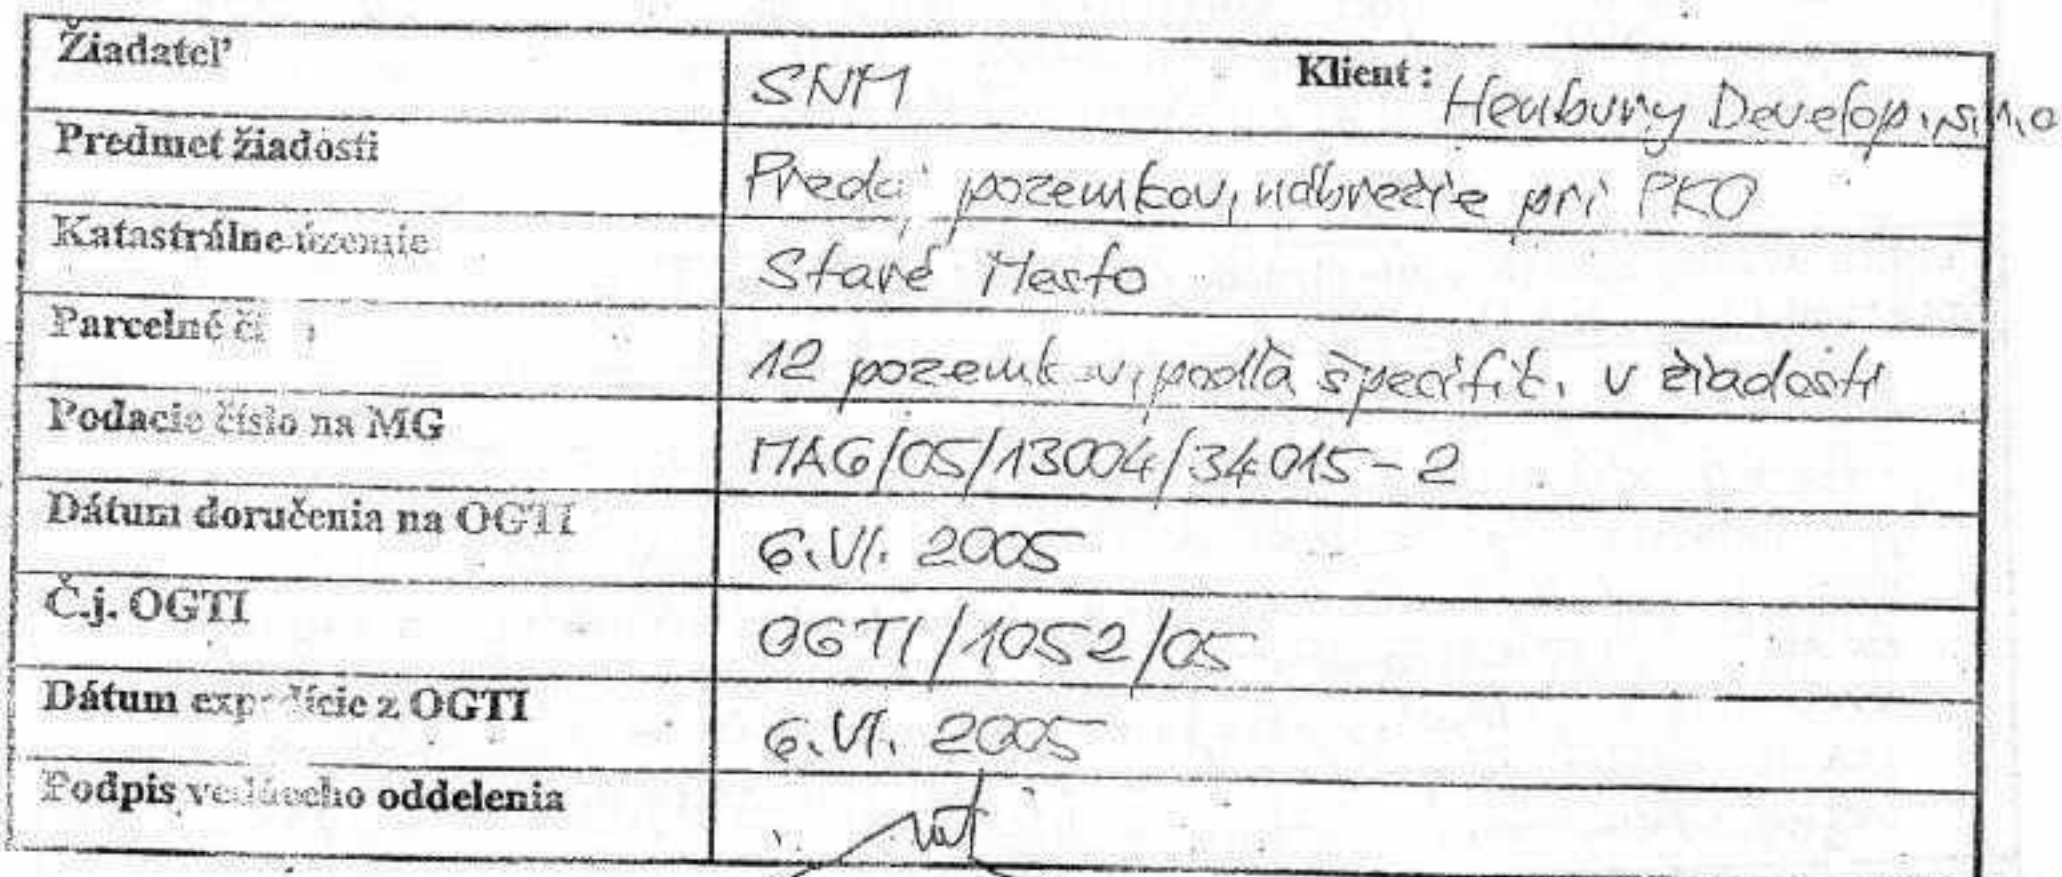 Žiadateľ SNM Klient : Henbury Develop., s.r.o
Predmet žiadosti Predaj pozemkov, nábrežie pri PKO
Katastrálne územie Staré Mesto
Parcelné 12 pozemkov, podľa špecifik. v žiadosti
Podacie číslo na MG MAG/05/13004/34015-2
Dátum doručenia na OGTI 6.VI. 2005
Č.j. OGTI OGTI/1052/05
Dátum expedície z OGTI 6.VI. 2005
Podpis vedúceho oddelenia